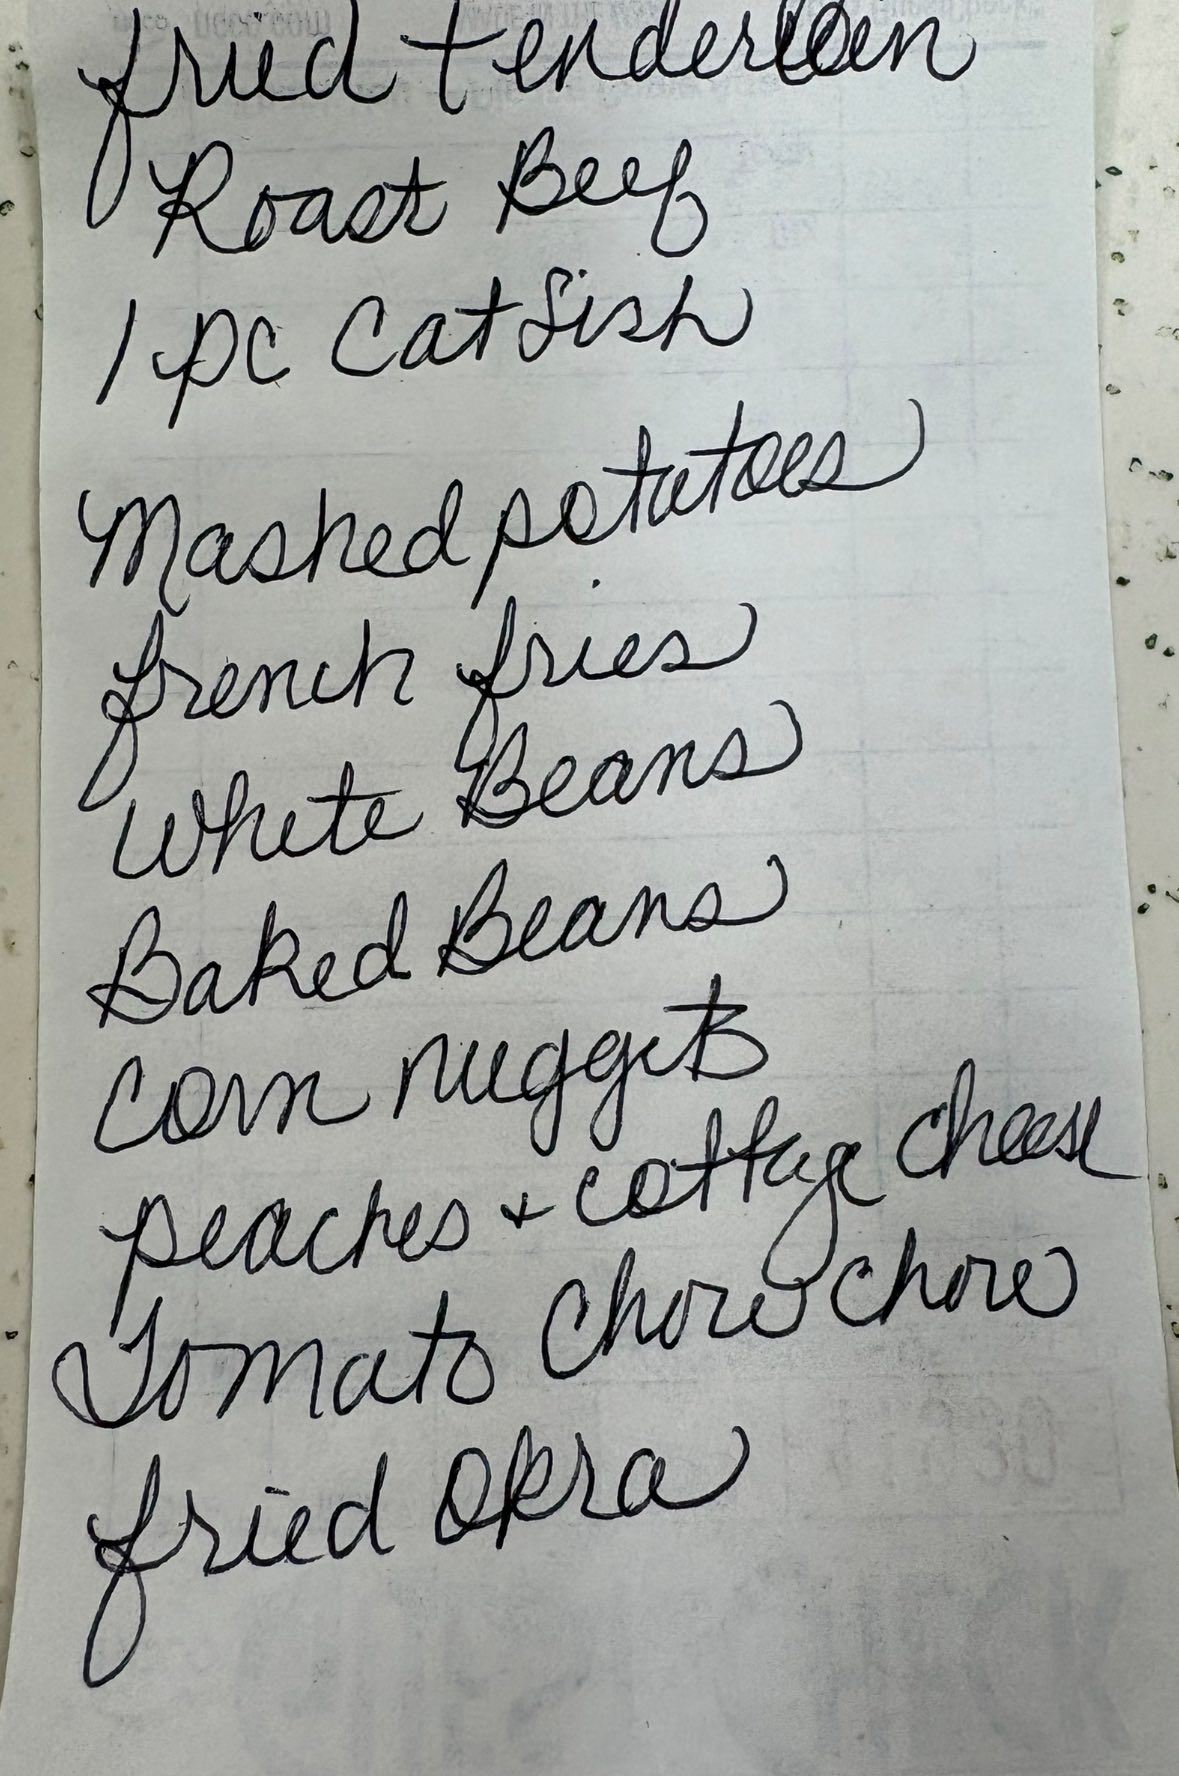 fried tenderloin
Roast Beef
1 pc Catfish
Mashed potatoes
french fries
White Beans
Baked Beans
Corn nuggets
peaches + cottage cheese
Tomato Chow chow
fried okra